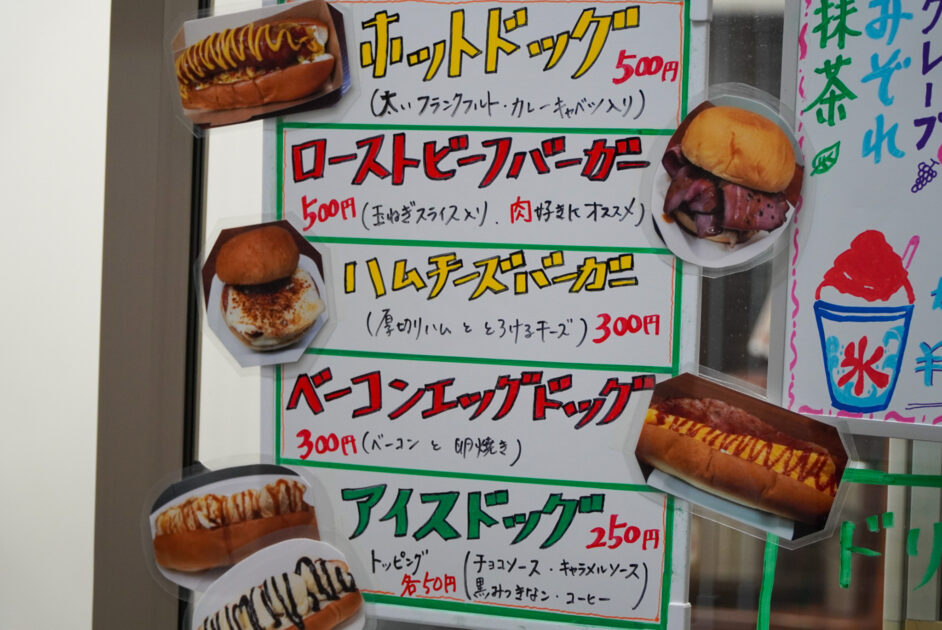 ホットドッグ
500円
(太いフランクフルト・カレーキャベツ入り)
ローストビーフバーガー
500円(玉ねぎスライス入り、肉好きにオススメ)
ハムチーズバーガー
(厚切りハムととろけるチーズ)300円
ベーコンエッグドッグ
300円(ベーコンと卵焼き)
アイスドッグ
250円
トッピング
各50円
(チョコソース・キャラメルソース
黒みつきなこ・コーヒー)
グレープ
みぞれ
抹茶
氷
¥
ドリ